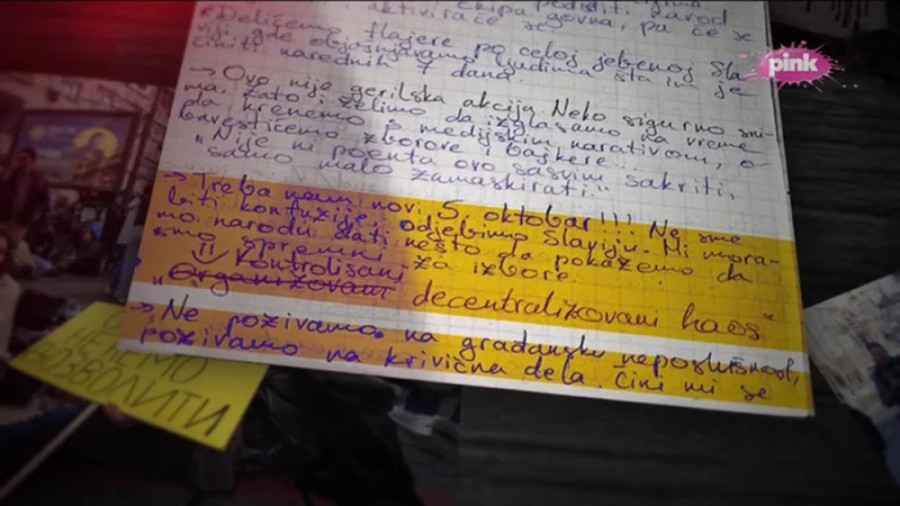 ekipa govna, pa će se
aktiviraće se
Delićemo flajere po celoj jebenoj Sla
viji gde objašnjavamo ljudima šta im je
činiti narednih 7 dana.
→ Ovo nije gerilska akcija. Neko sigurno sni-
ma. Zato i želimo da izglasamo na vreme
da krenemo s medijskim narativom, o-
bavestićemo zborove i bajkere...
"Nije ni poenta ovo sasvim sakriti,
samo malo zamaskirati."
→ Treba nam novi 5. oktobar!!! Ne sme
biti konfuzije, odjebimo Slaviju. Mi mora-
mo narodu dati nešto da pokažemo da
smo spremni za izbore.
Kontrolisani
"Organizovani decentralizovani haos"
→ Ne pozivamo na građansku neposlušnost,
pozivamo na krivična dela. Čini mi se
pink
НЕМО
ОЗВОЛИТИ